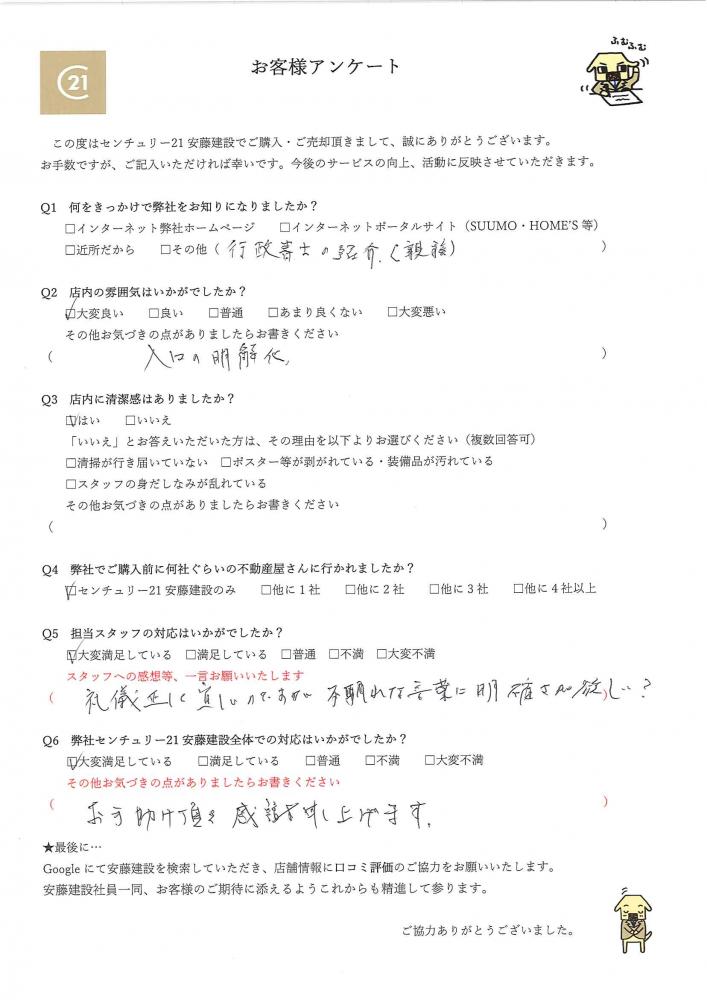 C21
お客様アンケート
ふむふむ
この度はセンチュリー21安藤建設でご購入・ご売却頂きまして、誠にありがとうございます。
お手数ですが、ご記入いただければ幸いです。今後のサービスの向上、活動に反映させていただきます。
Q1 何をきっかけで弊社をお知りになりましたか？
□インターネット弊社ホームページ □インターネットポータルサイト（SUUMO・HOME'S 等）
□近所だから □その他（行政書士の紹介.（親諠） ）
Q2 店内の雰囲気はいかがでしたか？
☑大変良い □良い □普通 □あまり良くない □大変悪い
その他お気づきの点がありましたらお書きください
（ 入口の明解化, ）
Q3 店内に清潔感はありましたか？
☑はい □いいえ
「いいえ」とお答えいただいた方は、その理由を以下よりお選びください（複数回答可）
□清掃が行き届いていない □ポスター等が剥がれている・装備品が汚れている
□スタッフの身だしなみが乱れている
その他お気づきの点がありましたらお書きください
（ ）
Q4 弊社でご購入前に何社ぐらいの不動産屋さんに行かれましたか？
☑センチュリー21安藤建設のみ □他に1社 □他に2社 □他に3社 □他に4社以上
Q5 担当スタッフの対応はいかがでしたか？
☑大変満足している □満足している □普通 □不満 □大変不満
スタッフへの感想等、一言お願いいたします
（ 礼儀正しく宜しいのですが 不馴れな言葉に明確さが欲しい？ ）
Q6 弊社センチュリー21安藤建設全体での対応はいかがでしたか？
☑大変満足している □満足している □普通 □不満 □大変不満
その他お気づきの点がありましたらお書きください
（ お手助け頂き感謝申し上げます. ）
★最後に…
Googleにて安藤建設を検索していただき、店舗情報に口コミ評価のご協力をお願いいたします。
安藤建設社員一同、お客様のご期待に添えるようこれからも精進して参ります。
ご協力ありがとうございました。